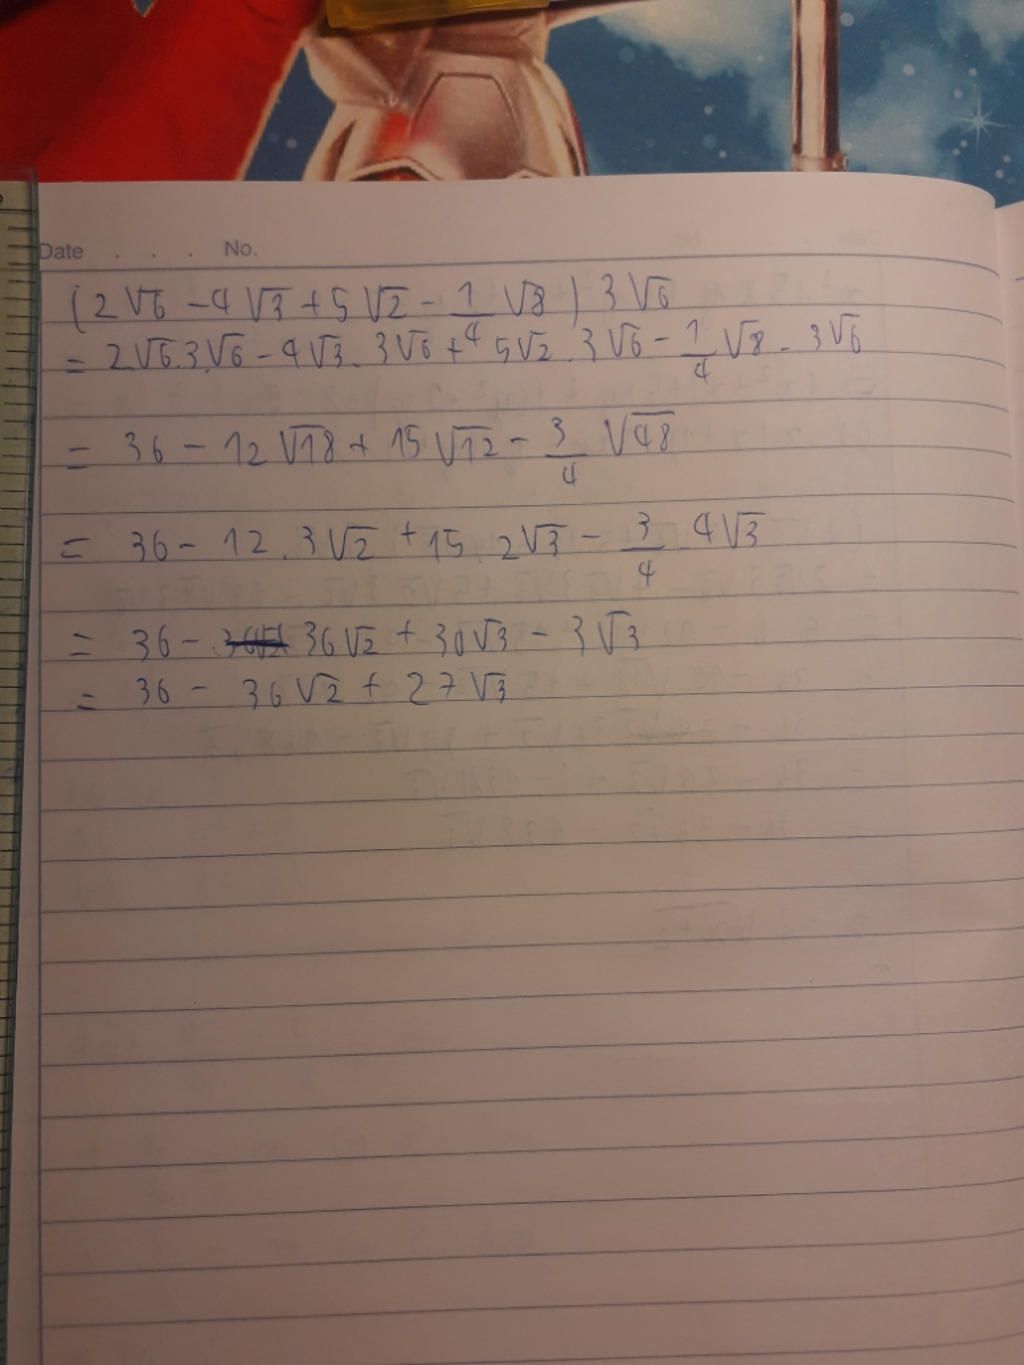 Date . . . No.
(2√6 - 4√3 + 5√2 - 1/4 √8) 3√6
= 2√6.3.√6 - 4√3. 3√6 + 5√2 . 3√6 - 1/4 √8 - 3√6
= 36 - 12√18 + 15√12 - 3/4 √48
= 36 - 12 . 3√2 + 15. 2√3 - 3/4 . 4√3
= 36 - 36√2 + 30√3 - 3√3
= 36 - 36√2 + 27√3